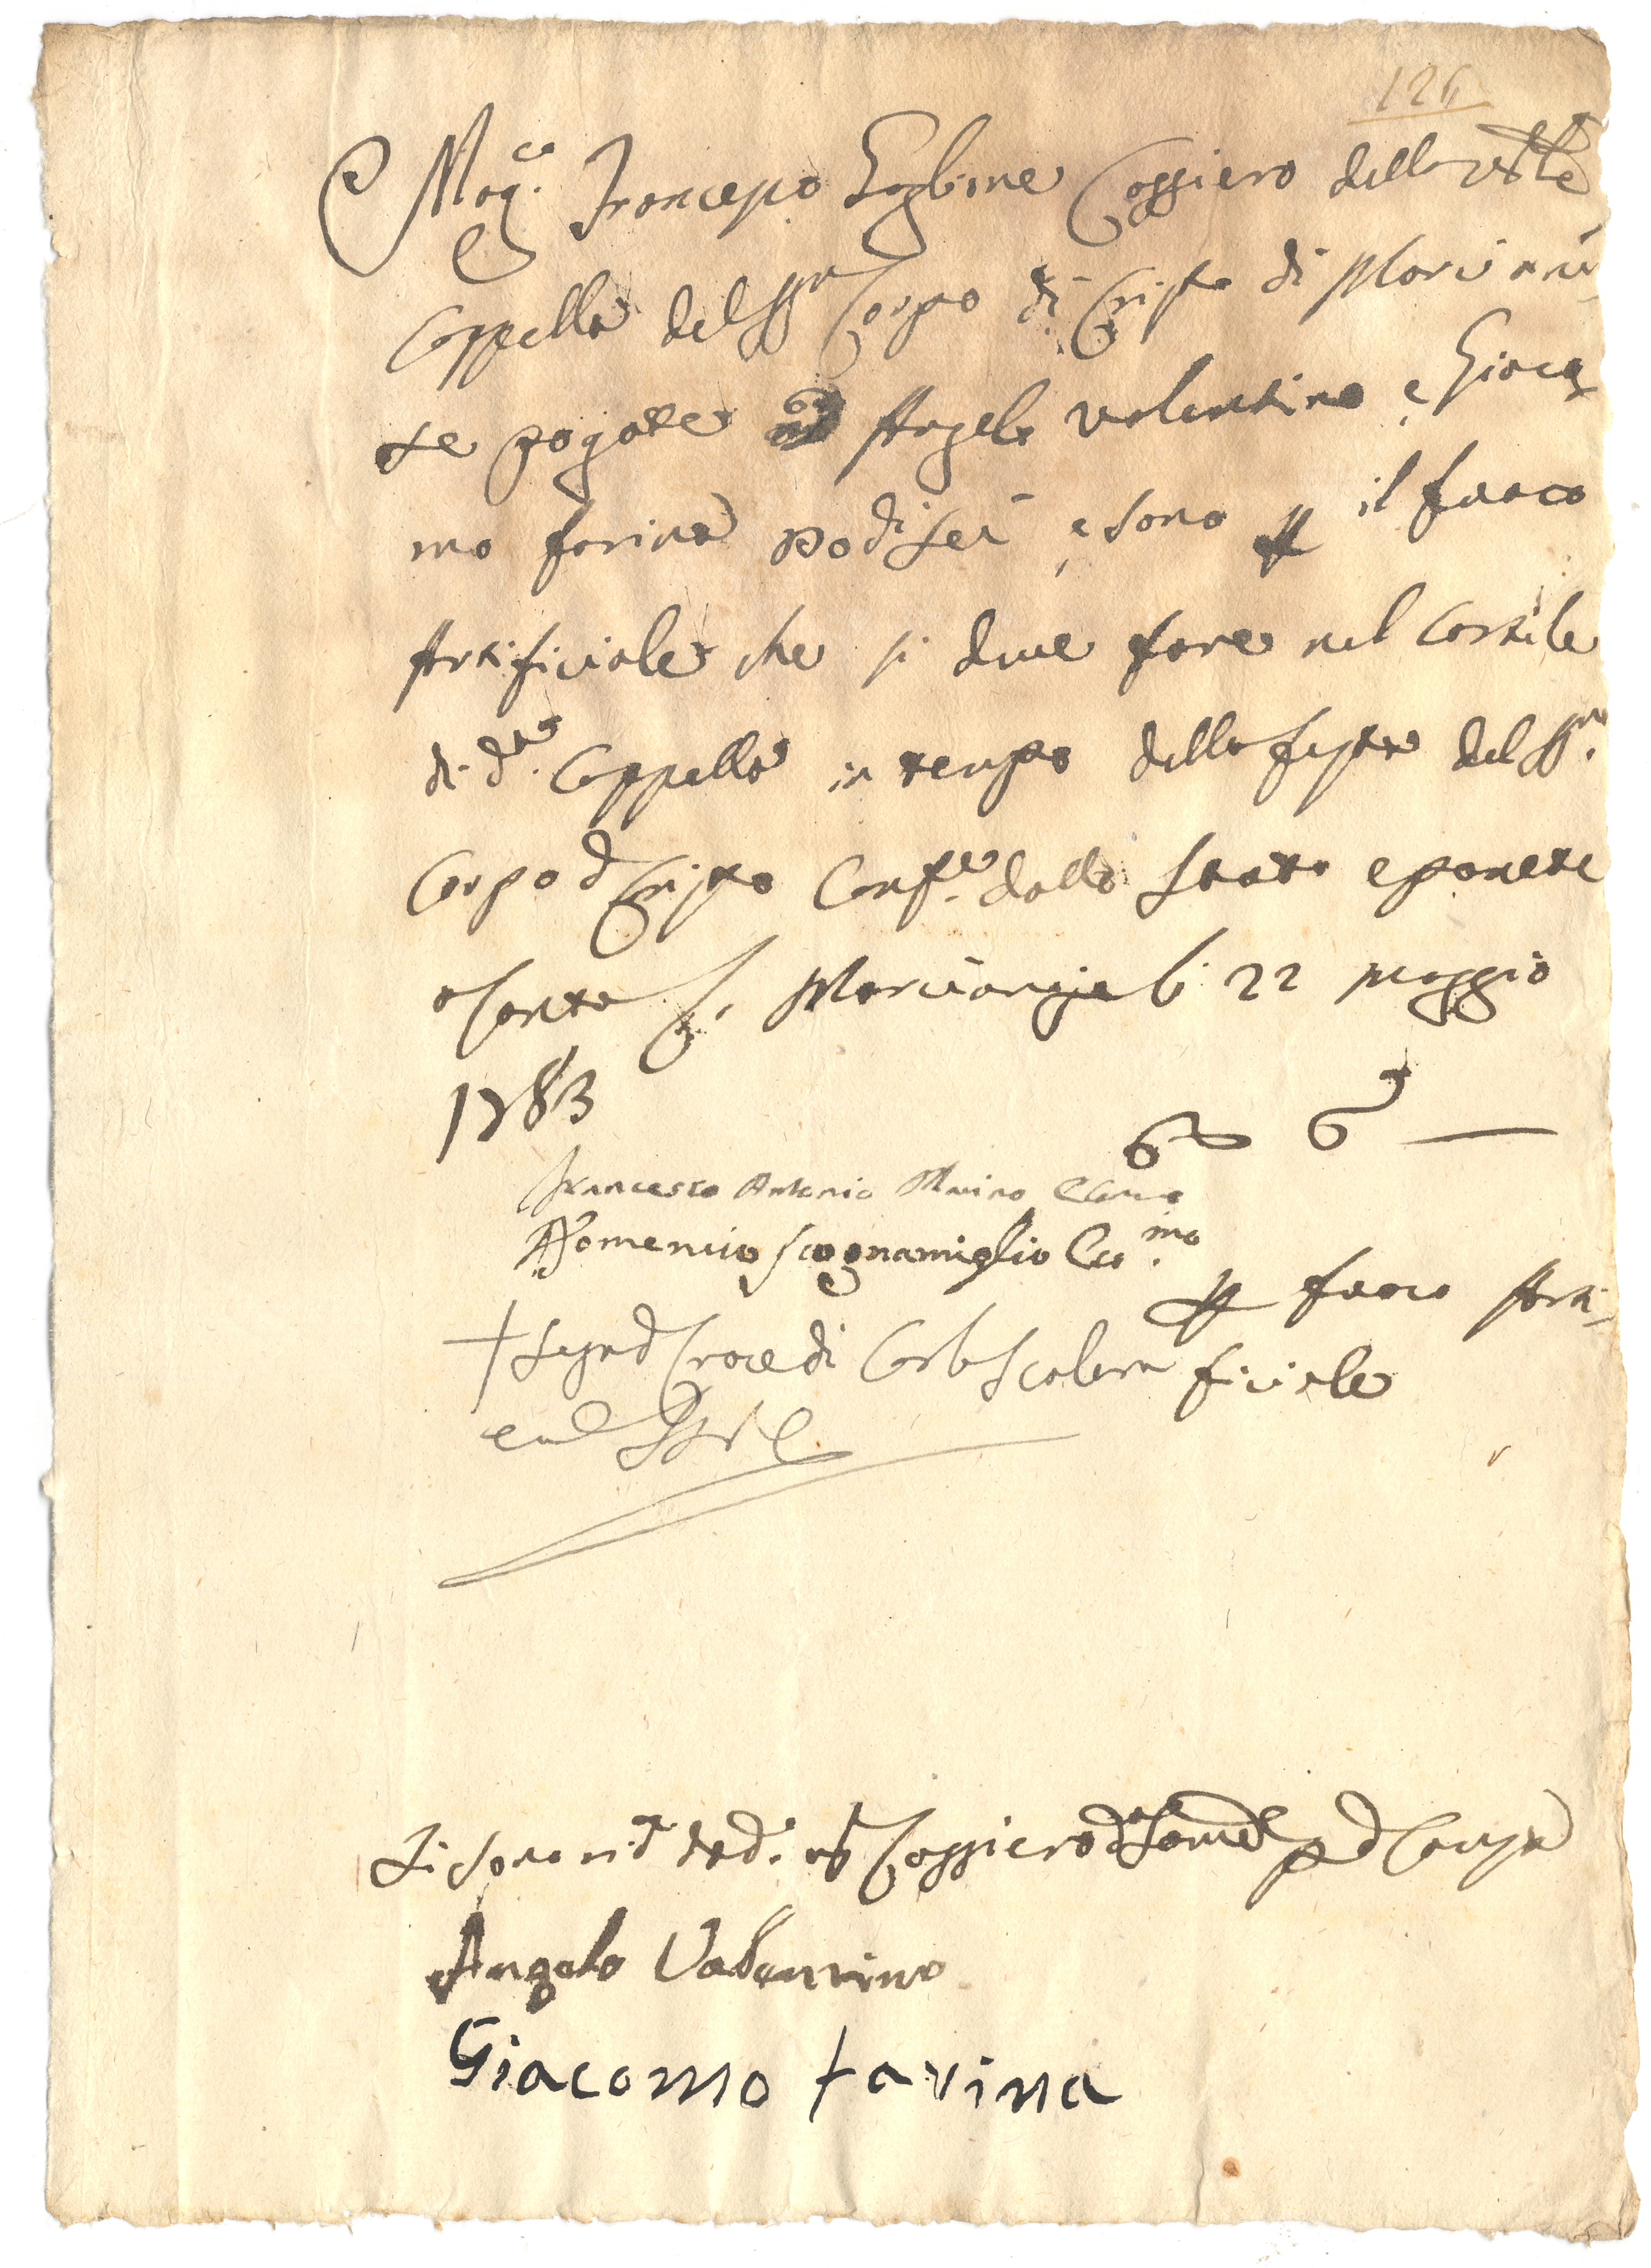 126
Mag.co Francesco Foglione Cassiero della ven.le
Cappella del SS.mo Corpo di Cristo di Marciani
se pagate ad Angelo valentino e Giaco
mo farina docati sei e sono per il fuoco
Artificiale che si deve fare nel Cortile
di d.ta Cappella in tempo della festa del SS.mo
Corpo di Cristo Conf.e dallo Stato e ponete
a conto. Marcianise li 22 maggio
1783
6
Francesco Antonio Marino
Domenico Scognamiglio Eco.mo
per fuoco Arti
+ Segno di Croce di Carlo Scalera
ficiale
Li sono ri.ti da d.o Cassiero la som.a p. d. Causa
Angelo Valentino
Giacomo farina